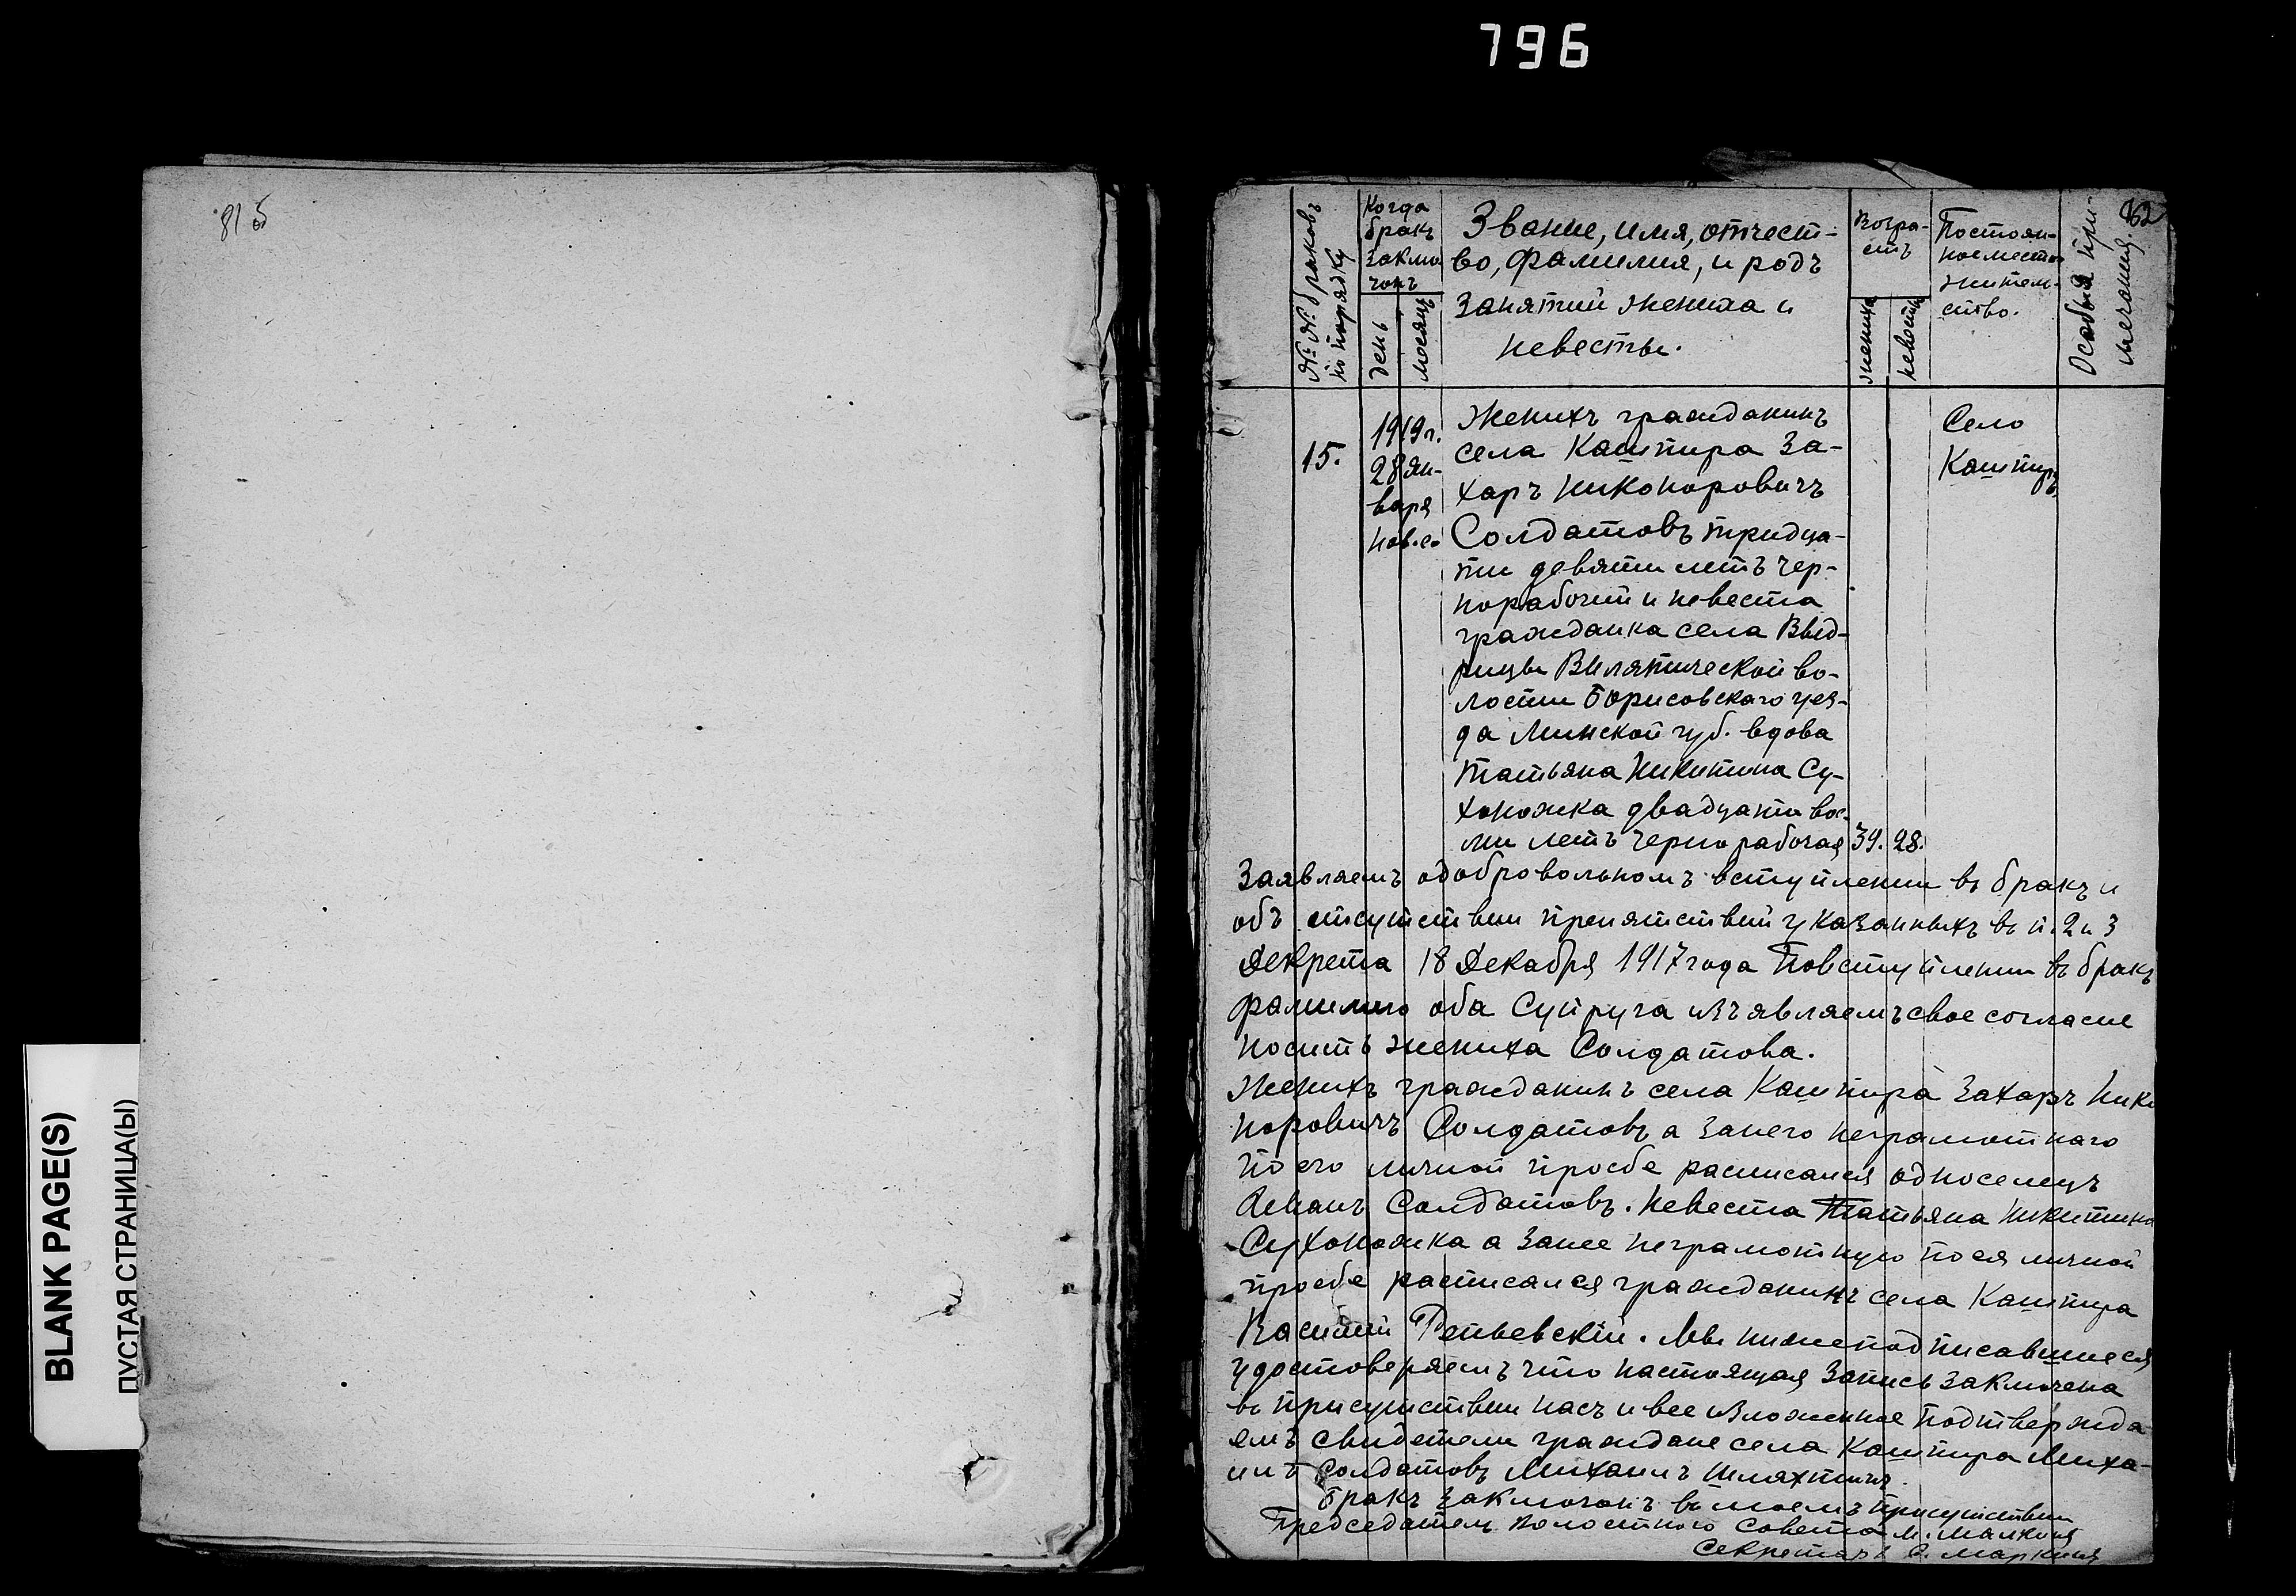 796
81 об
BLANK PAGE(S)
ПУСТАЯ СТРАНИЦА(Ы)
82
№ № браковъ по порядку
Когда бракъ заключонъ
день
месяцъ
Звание, имя, отчест-
во, фамилия, и родъ
занятий жениха и
невесты.
Возра-
стъ
жениха
невесты
Постоян-
ное место
житель-
ство.
Особыя при-
мечания.
15.
1919 г.
28 ян-
варя
нов. с.
Женихъ гражданинъ
села Кашпира За-
харъ Никоноровичъ
Солдатовъ тридца-
ти девяти летъ чер-
норабочий и невеста
гражданка села Выд-
рицы Вилятической во-
лости Борисовскаго уез-
да Минской губ. вдова
Татьяна Никитина Су-
хоножка двадцати вос-
ми летъ чернорабочая
39.
28.
Село
Кашпиръ.
Заявляемъ одобровольномъ вступлении въ бракъ и
объ отсутствии препятствий указанныхъ въ п. 2 и 3
Декрета 18 Декабря 1917 года Повступлении въ бракъ
фамилию оба Супруга изъявляемъ свое согласие
носить жениха Солдатова.
Женихъ гражданинъ села Кашпира Захаръ Нико
норовичъ Солдатовъ а занего неграмотнаго
по его личной просбе расписался односелецъ
Иванъ Солдатовъ. Невеста Татьяна Никитина
Сухоножка а занее неграмотную поея личной
просбе расписался гражданинъ села Кашпира
Василий Репьевский. Мы нижеподписавшиеся
удостоверяемъ что настоящая Запись заключена
въ присутствии насъ и все изложенное подтвержда
емъ свидетели граждане села Кашпира Миха-
илъ Солдатовъ Михаилъ Шляхтинъ.
Бракъ заключонъ въ моемъ присутствии
Председатель Волостного Совета М. Малкинъ
Секретарь С. Маркинъ